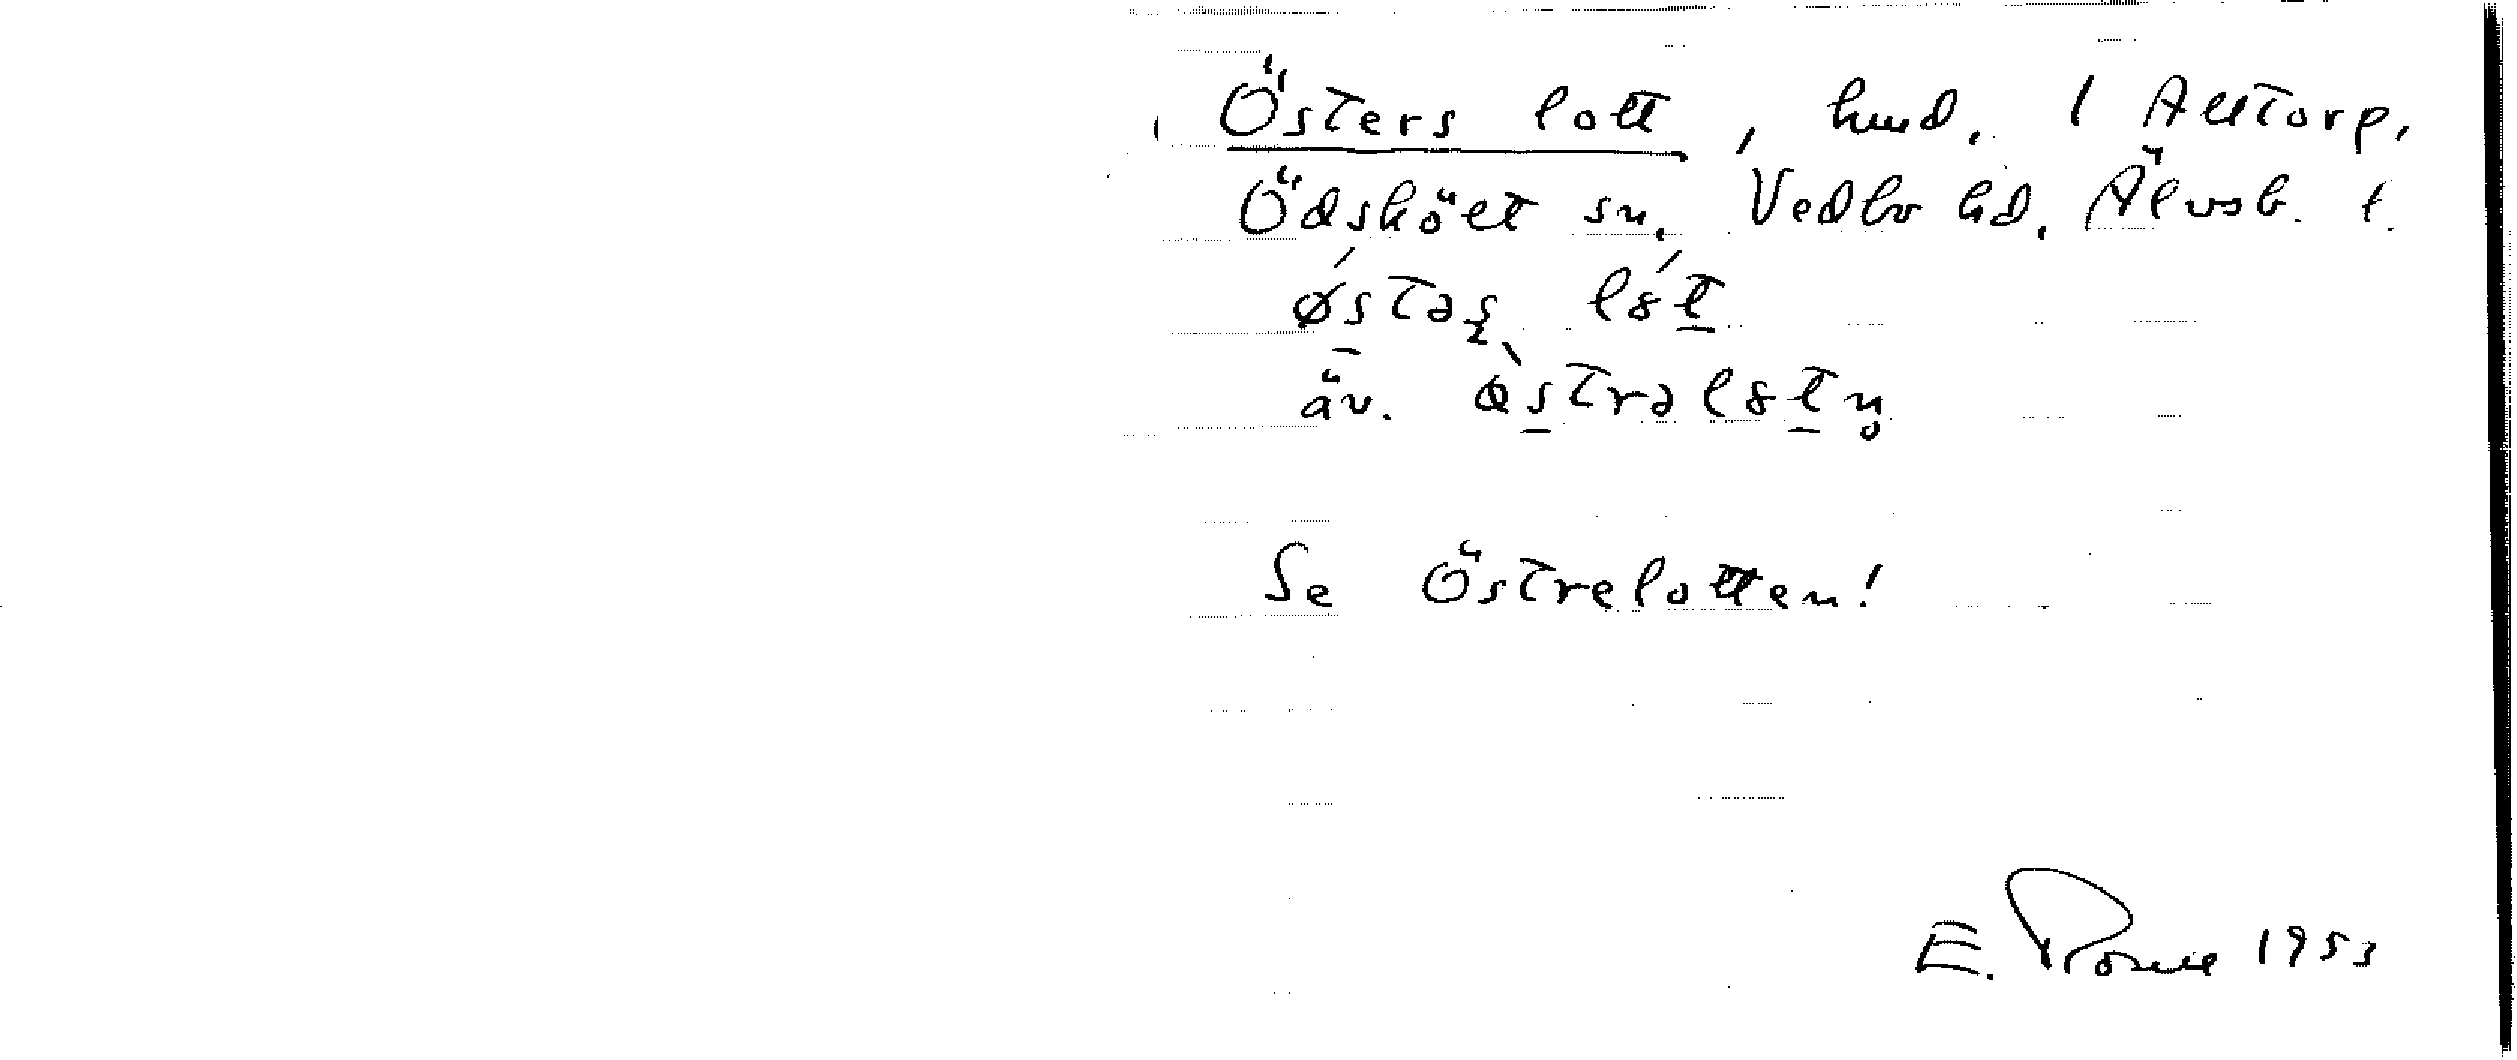 Östers lott, hmd. 1 Alltorp,
Ödskölt sn, Vedbo hd, Älvsb. l.
östəʂ lȣt
äv. östrəlȣtn̥
Se Östrelotten!
E. 1953